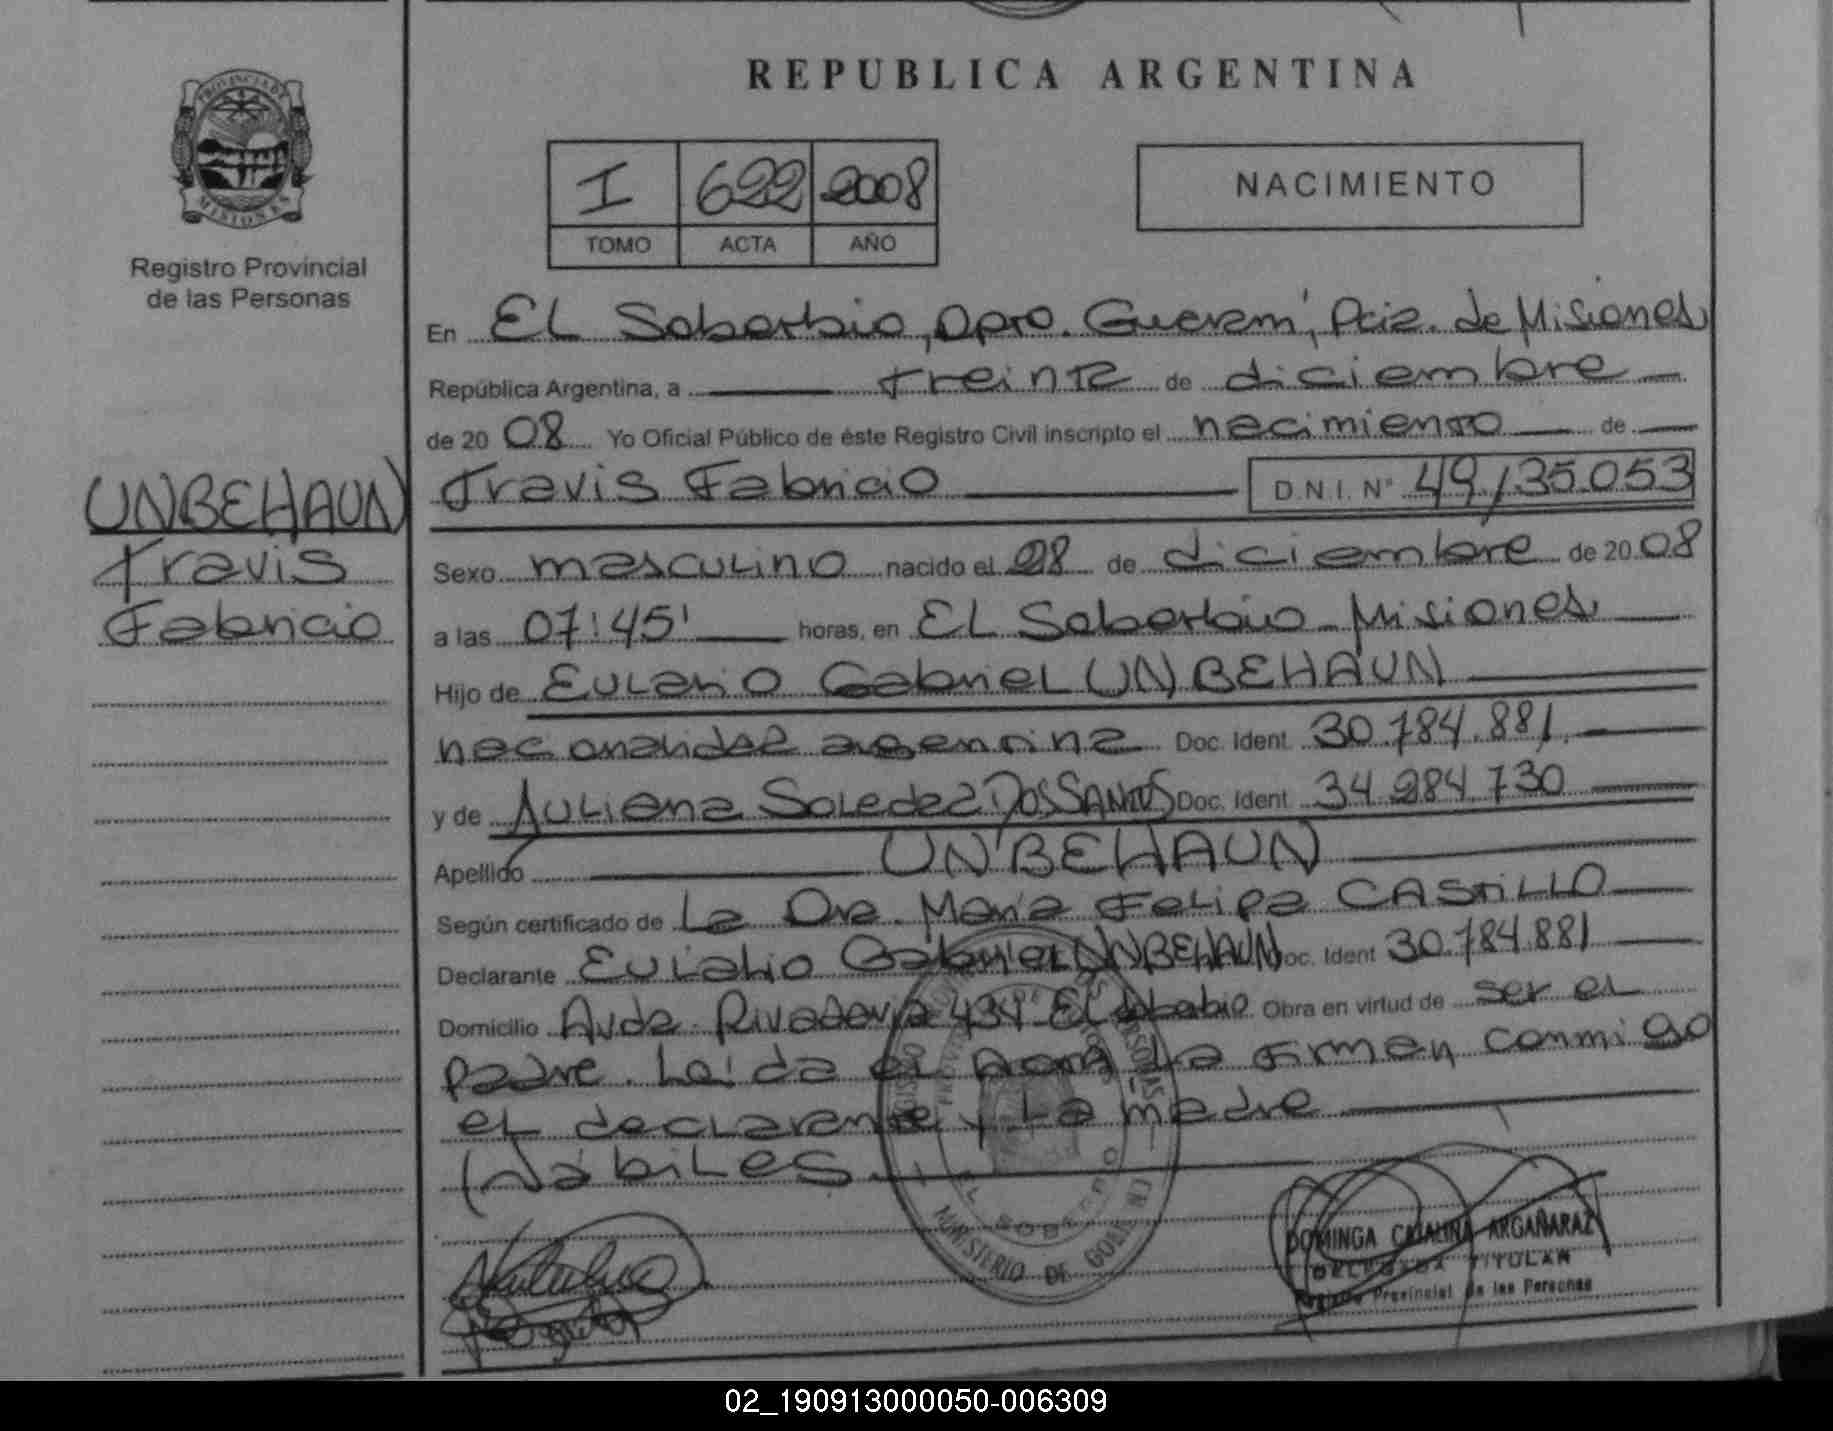 REPUBLICA ARGENTINA
PROVINCIA DE
MISIONES
Registro Provincial
de las Personas
I 622 2008
TOMO ACTA AÑO
NACIMIENTO
En EL Soberbio, Dpto. Guaraní, Pcia. de Misiones
República Argentina, a treinta de diciembre
de 2008 Yo Oficial Público de éste Registro Civil inscripto el nacimiento de
UNBEHAUN
Travis
Fabricio
Travis Fabricio D.N.I. N° 49.135.053
Sexo masculino nacido el 28 de diciembre de 2008
a las 07:45' horas, en EL Soberbio Misiones
Hijo de Eulalio Gabriel UNBEHAUN
nacionalidad argentina Doc. Ident. 30.784.881
y de Juliana Soledad DOS SANTOS Doc. Ident. 34.284.730
Apellido UNBEHAUN
Según certificado de La Dra. María Felipa CASTILLO
Declarante Eulalio Gabriel UNBEHAUN Doc. Ident 30.784.881
Domicilio Avda. Rivadavia 434 El Soberbio Obra en virtud de ser el
padre. Leída el Acta La firman conmigo
el declarante y La madre
Hábiles
MINISTERIO DE GOBIERNO
DOMINGA CATALINA ARGAÑARAZ
DELEGADA TITULAR
Registro Provincial de las Personas
02_190913000050-006309